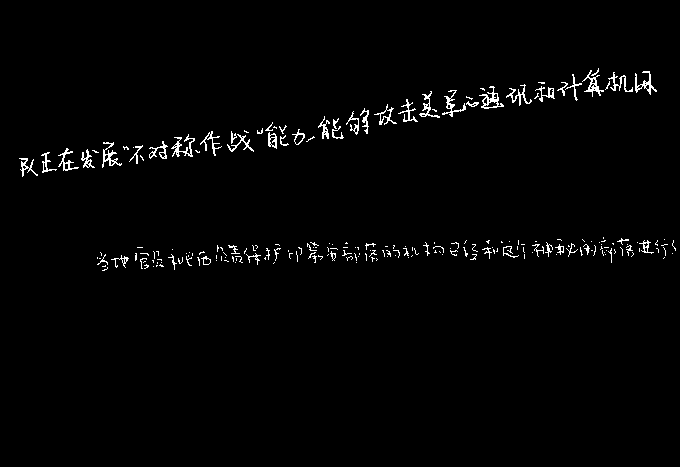 队正在发展"不对称作战"能力,能够攻击美军的通讯和计算机网
当地官员和巴西负责保护印第安部落的机构已经和这个神秘的部落进行